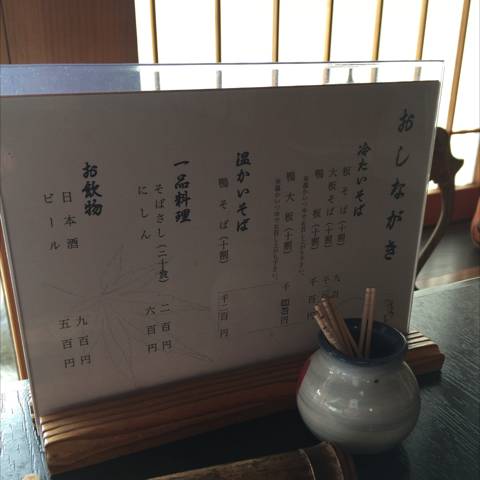 おしながき
冷たいそば
板そば（十割）
大板そば（十割）
鴨板（十割） 千百円
鴨大板（十割） 千四百円
温かいそば
鴨そば（十割） 千二百円
一品料理
そばさし（二十食） 二百円
にしん 六百円
お飲物
日本酒 九百円
ビール 五百円